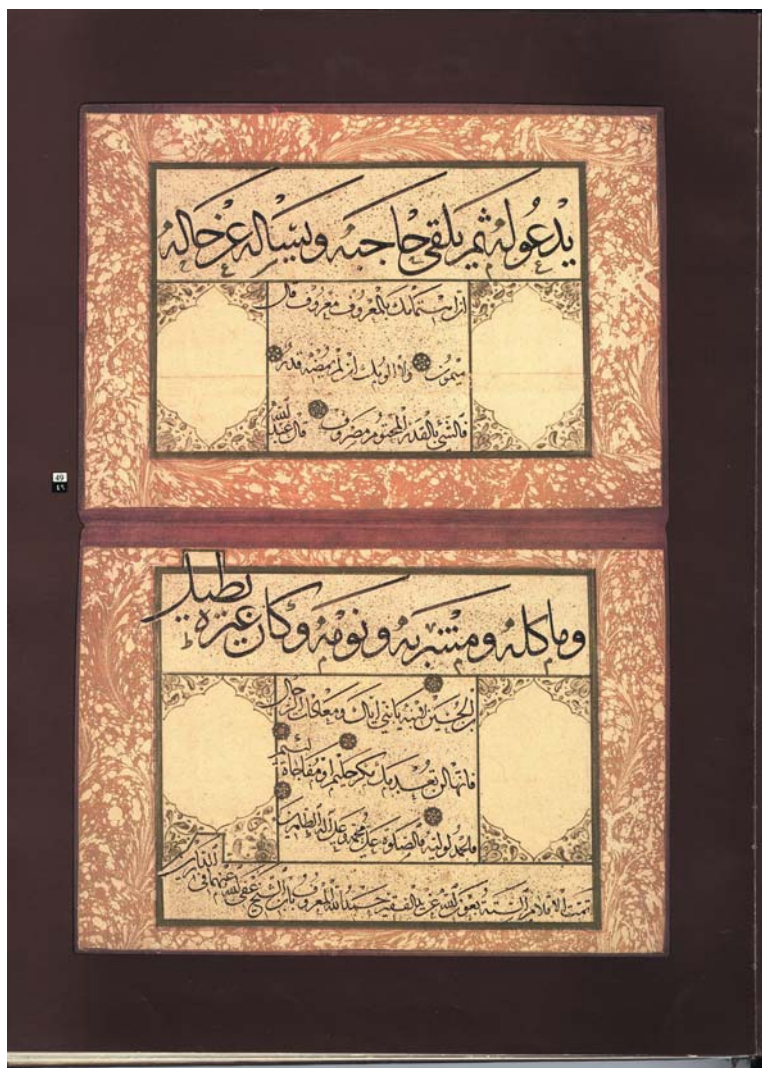 يدعو له ثم يلقى حاجبه ويسأله عن حاله
ان استتمامك بالمعروف معروف قال
ميمون ولا الومك ان لم يمضه قدر
فالشئ بالقدر المحتوم مصروف قال عبد الله
49
٤٩
وماكله ومشربه ونومه وكان غيره يطيل
بن الحسين لابنه يا بني اياك ومعادات الرجال
فانها لن تعدمك مكر حليم او مفاجاة لئيم
والصلوة على محمد وعلى اله الطاهرين
تمت الاقلام الستة بعون الله عن يد الفقير حمد الله المعروف بابن الشيخ عفى الله عنهما في الدارين